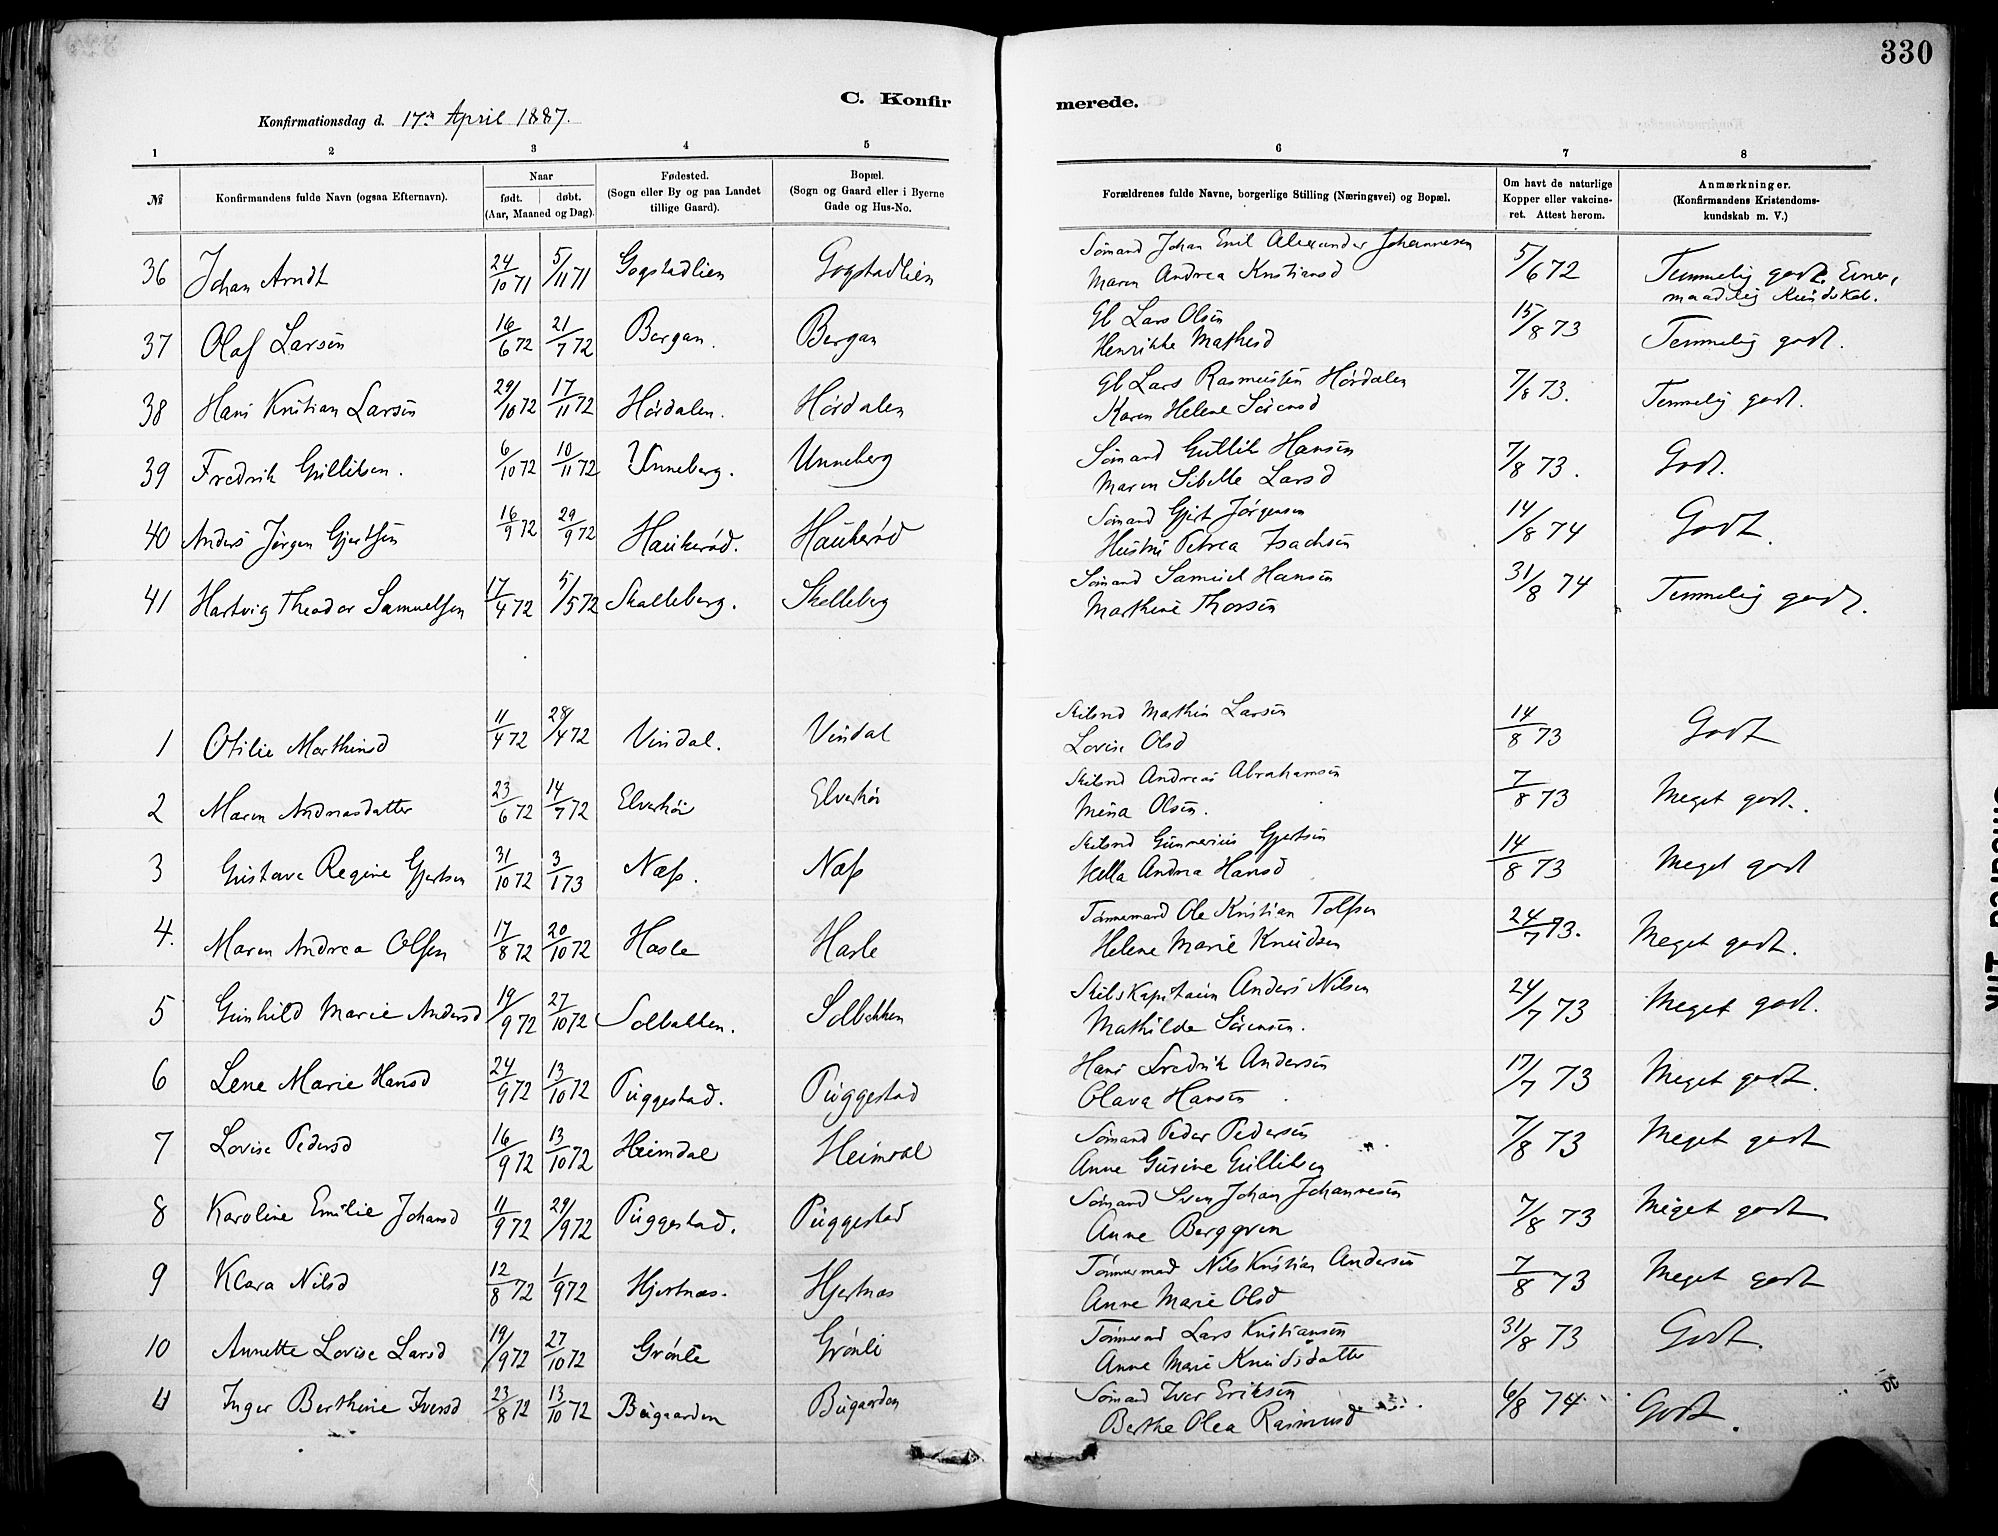 330
C. Konfirmerede.
Konfirmationsdag d. 17de April 1887.
1 2 3 4 5 6 7 8
№ Konfirmandens fulde Navn (ogsaa Efternavn). Naar født. døbt. (Aar, Maaned og Dag). Fødested. (Sogn eller By og paa Landet tillige Gaard). Bopæl. (Sogn og Gaard eller i Byerne Gade og Hus-No. Forældrenes fulde Navne, borgerlige Stilling (Næringsvei) og Bopæl. Om havt de naturlige Kopper eller vakcineret. Attest herom. Anmærkninger. (Konfirmandens Kristendomskundskab m. V.)
36 Johan Arndt 24/10 71 5/11 71 Gogstadlien Gogstadlien Sømand Johan Emil Alexander Johannesen 5/6 72 Temmelig godt.
Maren Andrea Kristiansd maadelig Kundskab.
37 Olaf Larsen 16/6 72 21/7 72 Bergan. Bergan Gb Lars Olsen 15/8 73 Temmelig godt.
Henrikke Mathesd
38 Hans Kristian Larsen 29/10 72 17/11 72 Hørdalen. Hørdalen Gb Lars Rasmussen Hørdalen 7/8 73. Temmelig godt.
Karen Helene Sørensd
39 Fredrik Gulliksen. 6/10 72 10/11 72 Unneberg. Unneberg Sømand Gullik Hansen 7/8 73. Godt.
Maren Sibille Larsd
40 Anders Jørgen Gjertsen 16/9 72 29/9 72 Haukerød. Haukerød Sømand Gjert Jørgensen 14/8 74 Godt.
Hustru Petrea Isachsen
41 Hartvig Theodor Samuelsen 17/4 72 5/5 72 Skalleberg. Skelleberg Sømand Samuel Hansen 31/8 74 Temmelig godt.
Mathine Thorsen
1 Otilie Marthinsd 11/4 72 28/4 72 Vindal. Vindal Skibsrd Mathin Larsen 14/8 73 Godt
Lovise Olsd
2 Maren Andreasdatter 23/6 72 14/7 72 Elverhøi Elverhøi Skibsrd Andreas Abrahamsen 7/8 73 Meget godt.
Mina Olsen.
3 Gustava Regine Gjertsen 31/10 72 3/1 73 Næss. Næss Skibsrd Gunnerius Gjertsen 14/8 73 Meget godt
Hella Andrea Hansd
4. Maren Andrea Olsen 17/8 72 20/10 72 Hasle Hasle Tømmermand Ole Kristian Tolfsen 24/7 73. Meget godt.
Helene Marie Knudsen
5 Gunhild Marie Andersd 19/9 72 27/10 72 Solbakken. Solbakken Skibskaptain Anders Nilsen 24/7 73 Meget godt.
Mathilde Sørensen.
6 Lene Marie Hansd 24/9 72 13/10 72 Puggestad. Puggestad Hans Fredrik Andersen 17/7 73 Meget godt.
Olava Hansen
7 Lovise Pedersd 16/9 72 13/10 72 Heimdal Heimdal Sømand Peder Pedersen 7/8 73 Meget godt
Anne Gurine Gulliksen
8 Karoline Emilie Johansd 11/9 72 29/9 72 Puggestad. Puggestad Sømand Sven Johan Johannesen 7/8 73 Meget godt
Anne Berggren
9 Klara Nilsd 12/8 72 1/9 72 Hjertnæs. Hjertnæs Tømmermand Nils Kristian Andersen 7/8 73 Meget godt
Anne Marie Olsd
10 Annette Lovise Larsd 19/9 72 27/10 72 Grønli Grønli Tømmermd Lars Kristiansen 31/8 73 Godt.
Anne Marie Knudsdatter
11 Inger Berthine Iversd 23/8 72 13/10 72 Bugaarden Bugaarden Sømand Iver Eriksen 6/8 74 Godt.
Berthe Olea Rasmusd